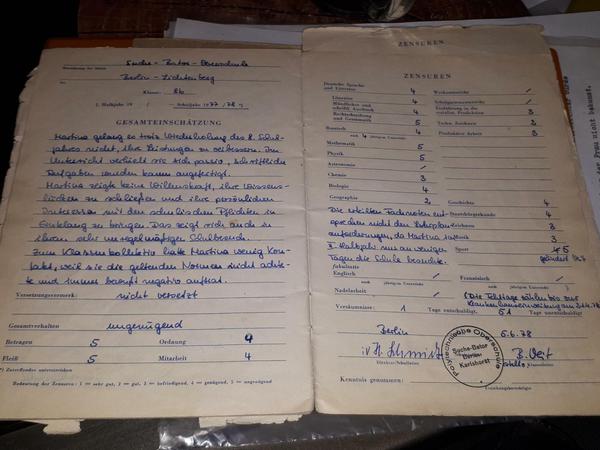 Suche-Bator-Oberschule
Bezeichnung der Schule
Berlin-Lichtenberg
Klasse: 8b
1. Halbjahr 19 / — Schuljahr 1977/78 *)
GESAMTEINSCHÄTZUNG
Martina gelang es trotz Wiederholung des 8. Schul-
jahres nicht, ihre Leistungen zu verbessern. Im
Unterricht verhielt sie sich passiv, schriftliche
Aufgaben wurden kaum angefertigt.
Martina zeigte keine Willenskraft, ihre Wissens-
lücken zu schließen und ihre persönlichen
Interessen mit den schulischen Pflichten in
Einklang zu bringen. Das zeigt sich auch in
ihrem sehr unregelmäßigen Schulbesuch.
Zum Klassenkollektiv hatte Martina wenig Kon-
takt, weil sie die geltenden Normen nicht achte-
te und immer negativ auftrat.
Versetzungsvermerk: nicht versetzt
Gesamtverhalten ungenügend
Betragen 5 Ordnung 4
Fleiß 5 Mitarbeit 4
*) Zutreffendes unterstreichen
Bedeutung der Zensuren: 1 = sehr gut, 2 = gut, 3 = befriedigend, 4 = genügend, 5 = ungenügend
ZENSUREN
ZENSUREN
Deutsche Sprache und Literatur 4
Literatur 4
Mündlicher und schriftl. Ausdruck 4
Rechtschreibung und Grammatik 5
Russisch 4
Mathematik 5
Physik 5
Astronomie /
Chemie 3
Biologie 4
Geographie 2
Werkunterricht /
Schulgartenunterricht /
Einführung in die sozialist. Produktion 3
Techn. Zeichnen 3
Produktive Arbeit 3
Geschichte 4
Staatsbürgerkunde 4
Zeichnen 3
Musik 3
Sport
Die erteilten Fachnoten ent-
sprechen nicht den Lehrplan-
anforderungen, da Martina im
II. Halbjahr nur an wenigen
Tagen die Schule besuchte.
fakultativ
Englisch /
Französisch /
Nadelarbeit /
Versäumnisse: 1 Tage entschuldigt, 51 Tage unentschuldigt
Berlin 5.6.78
i.V. H. Schmidt
Direktor/Schulleiter
Polytechnische Oberschule
Suche-Bator
Berlin-
Karlshorst
Klassenleiter
Kenntnis genommen:
Erziehungsberechtigter